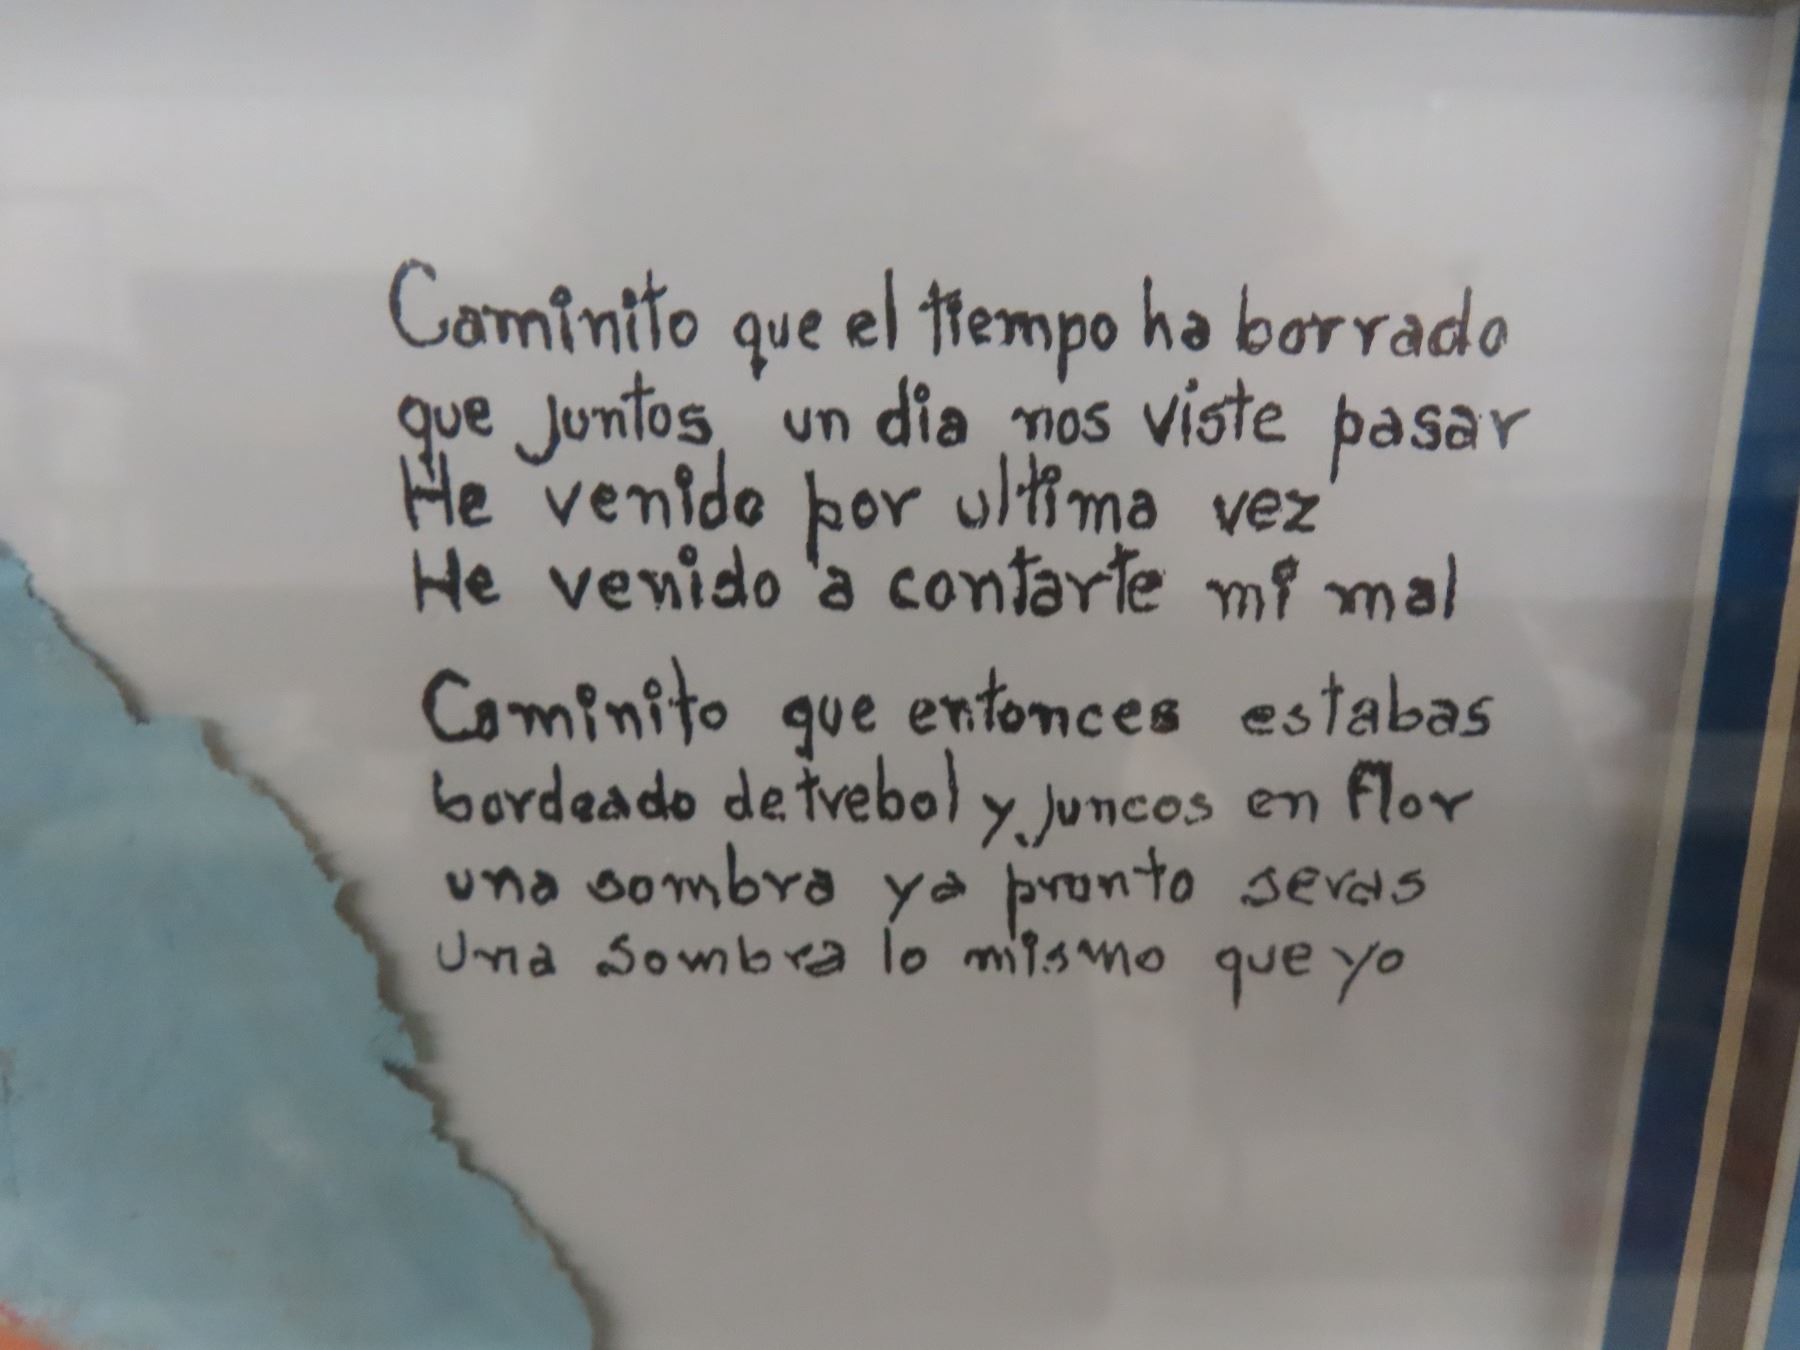 Caminito que el tiempo ha borrado
que juntos un dia nos viste pasar
He venido por ultima vez
He venido a contarte mi mal
Caminito que entonces estabas
bordeado de trebol y juncos en flor
una sombra ya pronto seras
una sombra lo mismo que yo